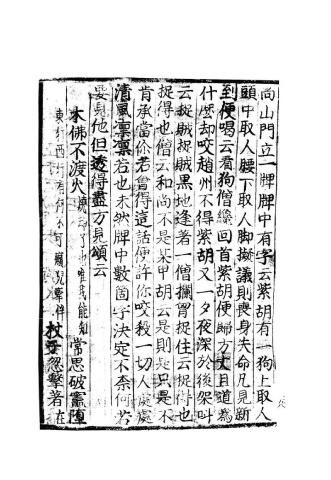 向山門立一牌牌中有字云紫胡有一狗上取人
頭中取人腰下取人脚擬議則喪身失命凡見新
到便喝云看狗僧纔回首紫胡便歸方丈且道為
什麼却咬趙州不得紫胡又一夕夜深於後架叫
云捉賊捉賊黑地逢著一僧攔胷捉住云捉得也
捉得也僧云和尚不是某甲胡云是則是只是不
肯承當你若會得這話便許你咬殺一切人處處
清風凛凛若也未然牌中數箇字決定不柰何若
要見他但透得盡方見頌云
木佛不渡火 燒却了也唯我能知 常思破竈墮
東行西行有何不可 杖子忽擊著 在